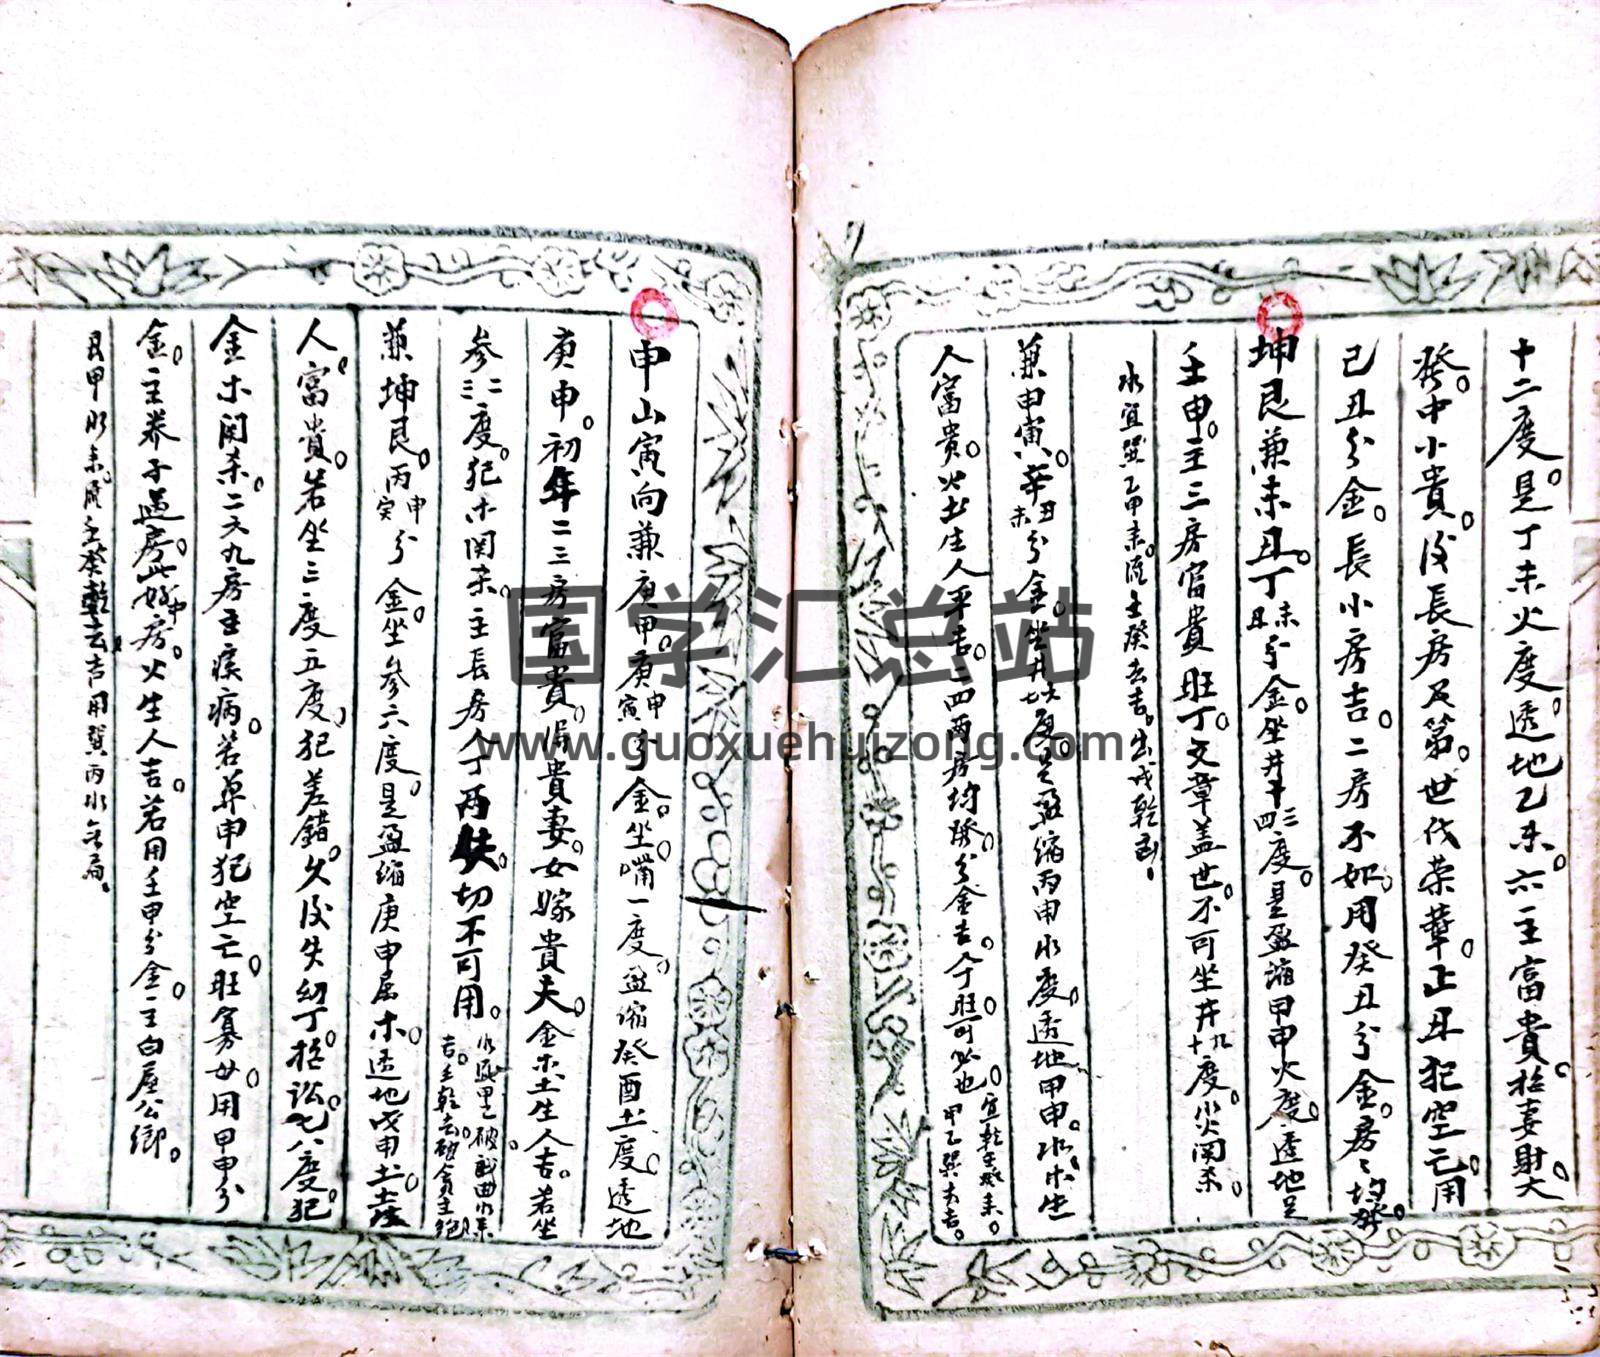 十二度。是丁未火度。透地乙未。六主富貴。招妻財大
發。中小貴。後長房及第。世代荣華。正丑犯空亡。用
己丑分金。長小房吉。二房不如。用癸丑分金。房〻均發。
坤艮兼未丑。丁未丑分金。坐井十三四度。是盈縮甲申火度。透地是
壬申。主三房富貴旺丁。文章盖世。不可坐井十九度。火関杀。
水宜巽乙甲未。流壬癸去吉。出戌乾凶。
兼申寅。辛丑未分金。坐井度。是盈縮丙申水度。透地甲申。水木生
人富貴。火土生人平吉。二四两房均發。分金吉。人丁旺可必也。宜乾壬癸来。甲乙巽去吉。
申山寅向兼庚甲。庚申寅分金。坐嘴一度。盈縮癸酉土度。透地
庚申。初年二三房富貴。偏貴妻。女嫁貴夫。金木土生人吉。若坐
参二三度。犯木関杀。主長房人丁两缺。切不可用。
兼坤艮。丙申寅分金。坐参六度。是盈縮庚申属木。透地戊申土。主
人富貴。若坐三度五度。犯差錯。久後失幼丁。招訟。七八度犯
金木関杀。二六九房主疾病。若葬申犯空亡。旺寡女。用甲申分
金。主养子過房。此好中房。火生人吉。若用壬申分金。主白屋公卿。
艮甲水来。流壬癸乾去吉。用巽丙水合局。
国学汇总站
www.guoxuehuizong.com